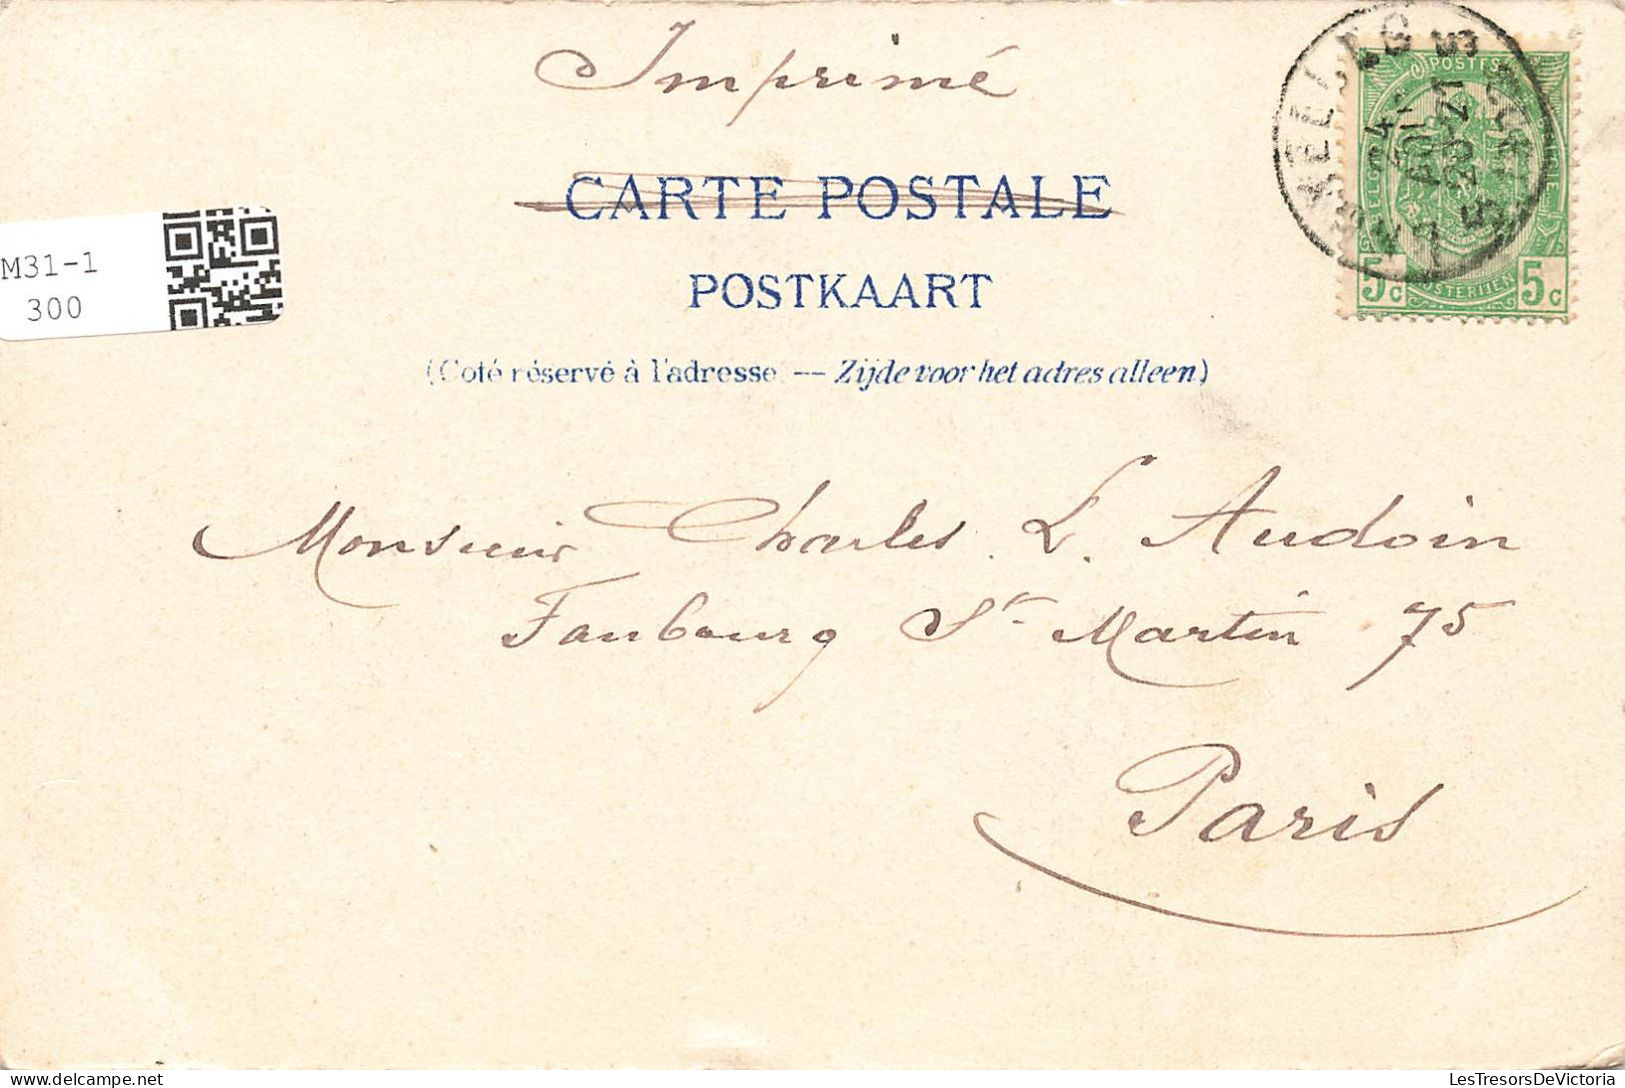 Imprimé
CARTE POSTALE
POSTKAART
(Coté réservé à l'adresse. — Zijde voor het adres alleen)
POSTES
5c POSTERIJEN 5c
M31-1
300
Monsieur Charles L. Audoin
Faubourg St Martin 75
Paris
LesTresorsDeVictoria